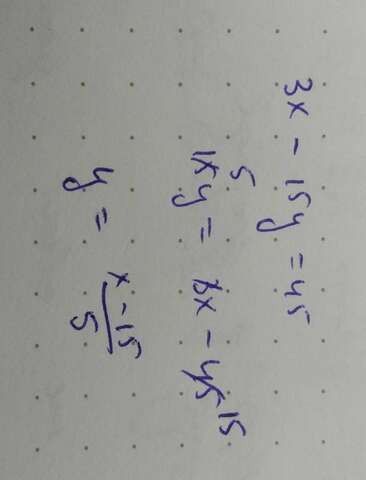 3x - 15y = 45
5
15y = 3x - 45 15
y = x - 15 / 5